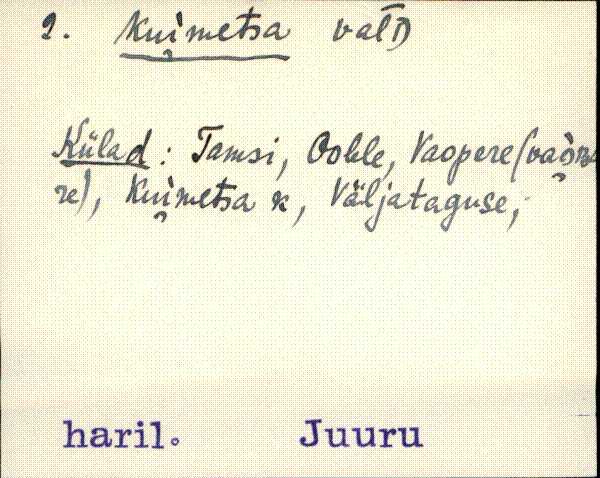 2. Kui̮metsa valD
Külad: Tamsi, Ooble, Vaopere (
re), Kui̮metsa k, Väljataguse,
haril. Juuru